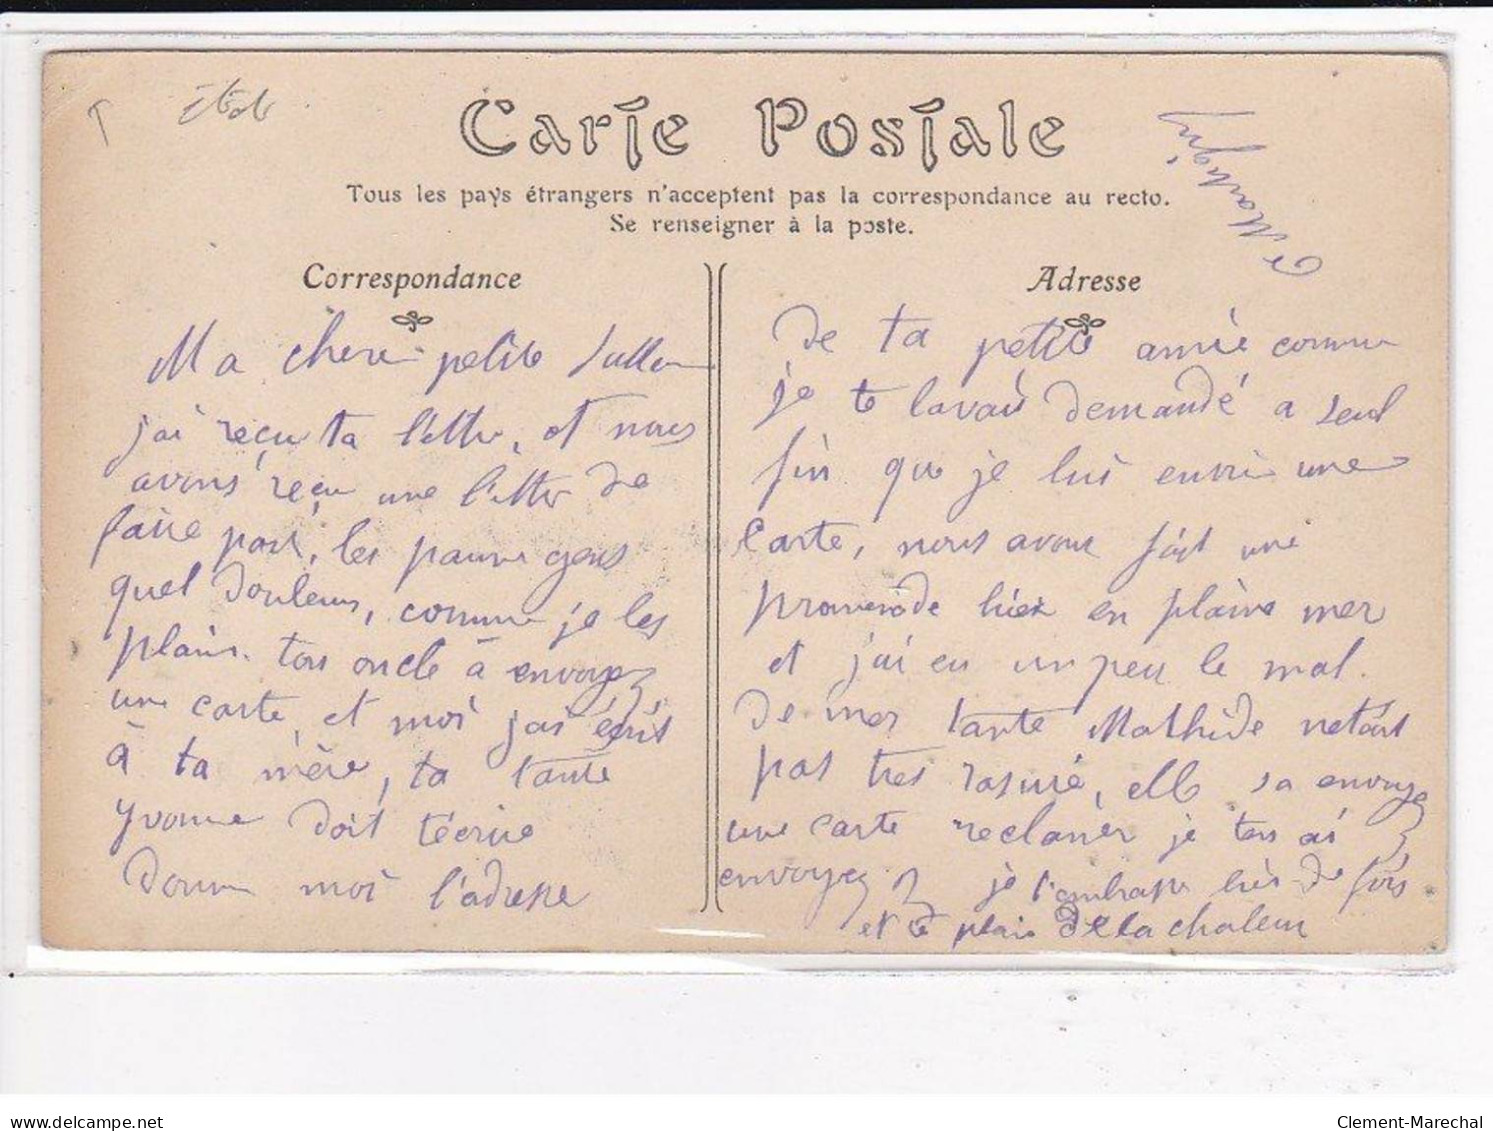 Carte Postale
Tous les pays étrangers n'acceptent pas la correspondance au recto.
Se renseigner à la poste.
Correspondance
Ma chere petite
j'ai reçu ta lettre, et nous
avons reçu une lettre de
faire part, les pauvre gens
quel douleurs, comme je les
plains. ton oncle à envoyez
une carte et moi jai écrit
à ta mère, ta tante
Yvonne doit técrire
donne moi l'adresse
Adresse
De ta petite amie comme
je te lavais demandé a seul
fin que je lui envoi une
Carte, nous avons fait une
promenade hier en plaine mer
et j'ai eu un peu le mal.
De mer tante Mathide netait
pas tres rasuré, elle sa envoyez
une carte reclamer je ten ai
envoyez 2 je t'embrasse bien de fois
et te plain de la chaleur
Clement-Marechal
www.delcampe.net